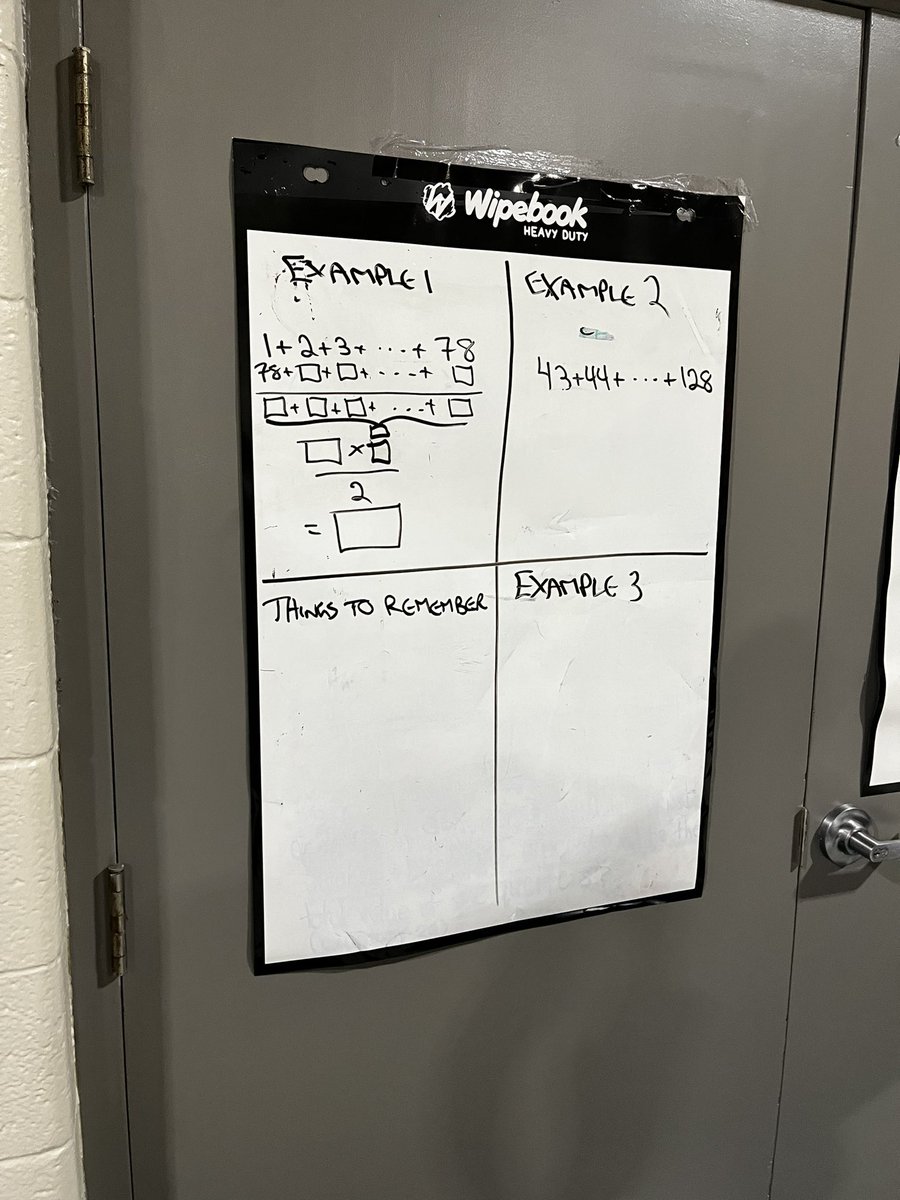 Wipebook
HEAVY DUTY
EXAMPLE 1
1+2+3+ ····+ 78
78+□+□+····+ □
□+□+□+ ····+ □
□ × □
2
= □
EXAMPLE 2
43+44+ ···· +128
THINGS TO REMEMBER
EXAMPLE 3